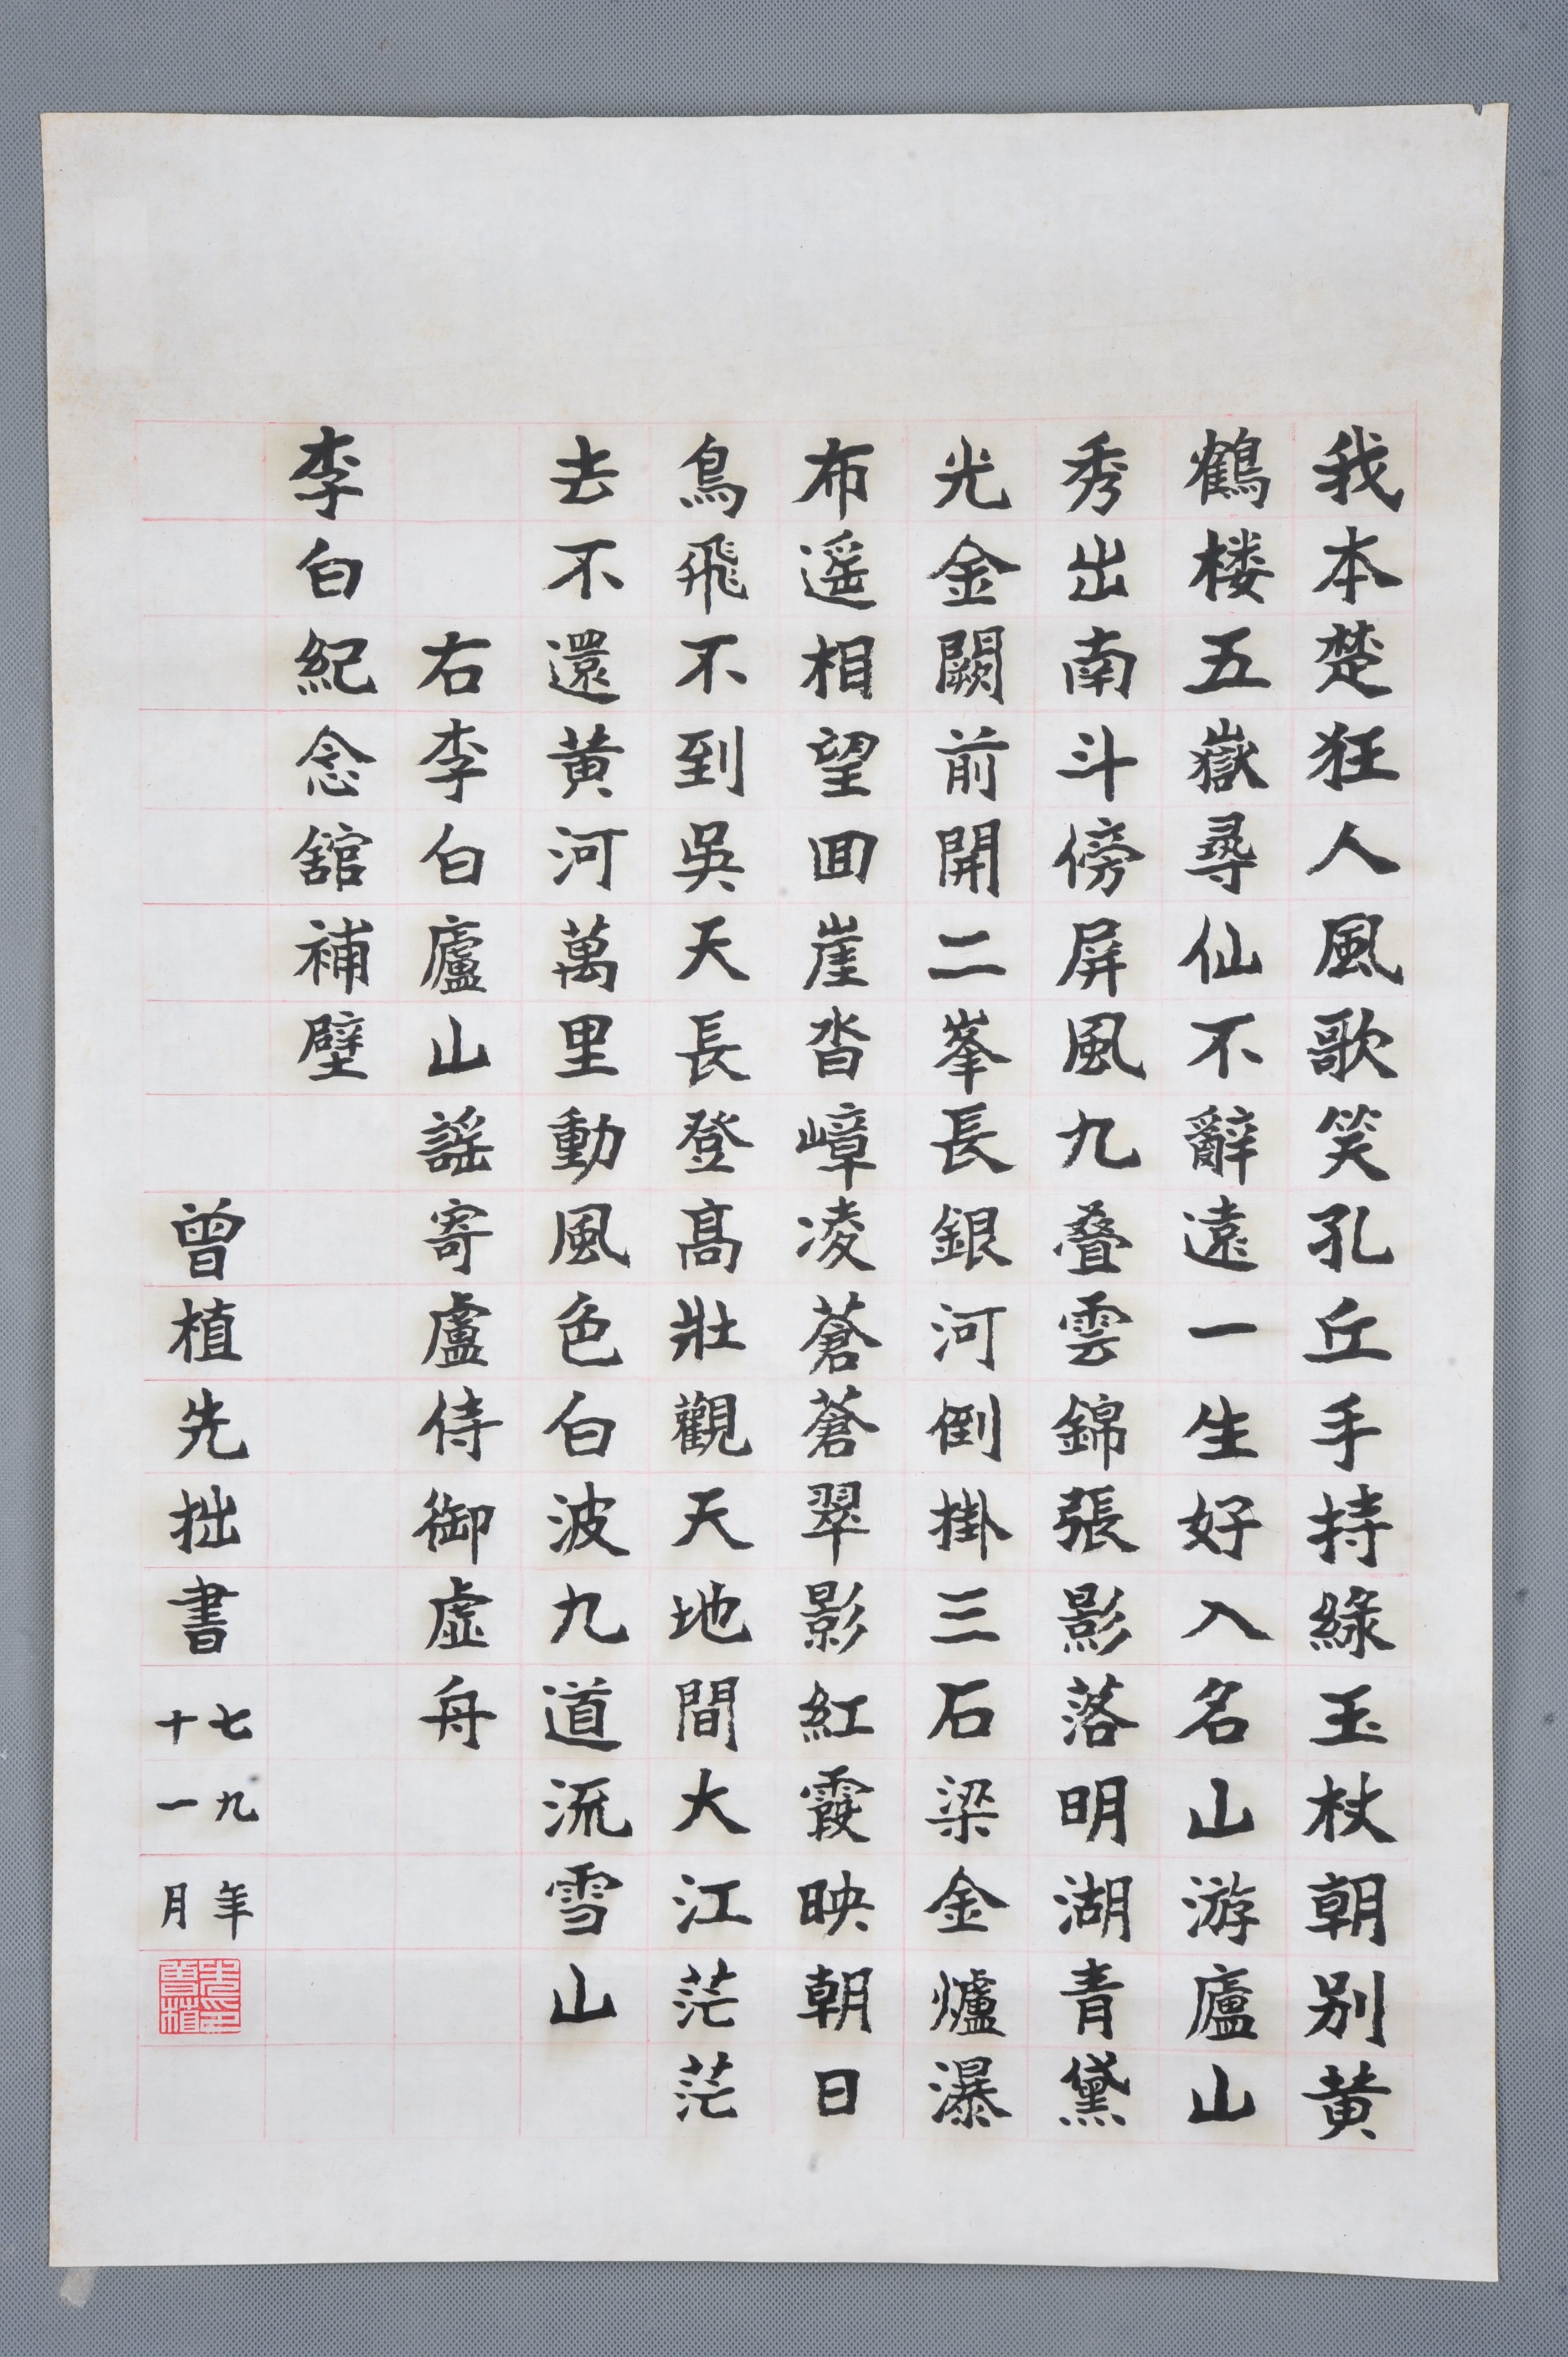 我本楚狂人風歌笑孔丘手持綠玉杖朝別黄
鶴楼五嶽尋仙不辭遠一生好入名山游廬山
秀出南斗傍屏風九叠雲錦張影落明湖青黛
光金闕前開二峯長銀河倒掛三石梁金爐瀑
布遥相望囬崖沓嶂凌蒼蒼翠影紅霞映朝日
鳥飛不到吳天長登高壯觀天地間大江茫茫
去不還黄河萬里動風色白波九道流雪山
右李白廬山謡寄盧侍御虛舟
李白紀念舘補壁
曾植先拙書
七九年
十一月
曾植先印